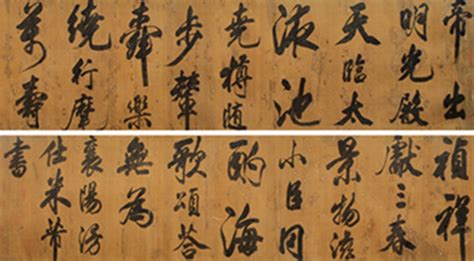 帝出
明光殿
天臨太
液池
堯樽隨
步輦
舜樂
繞行麾
萬壽
禎祥
獻三春
景物滋
小臣同
酌海
歌頌答
無為
襄陽漫
仕米芾
書